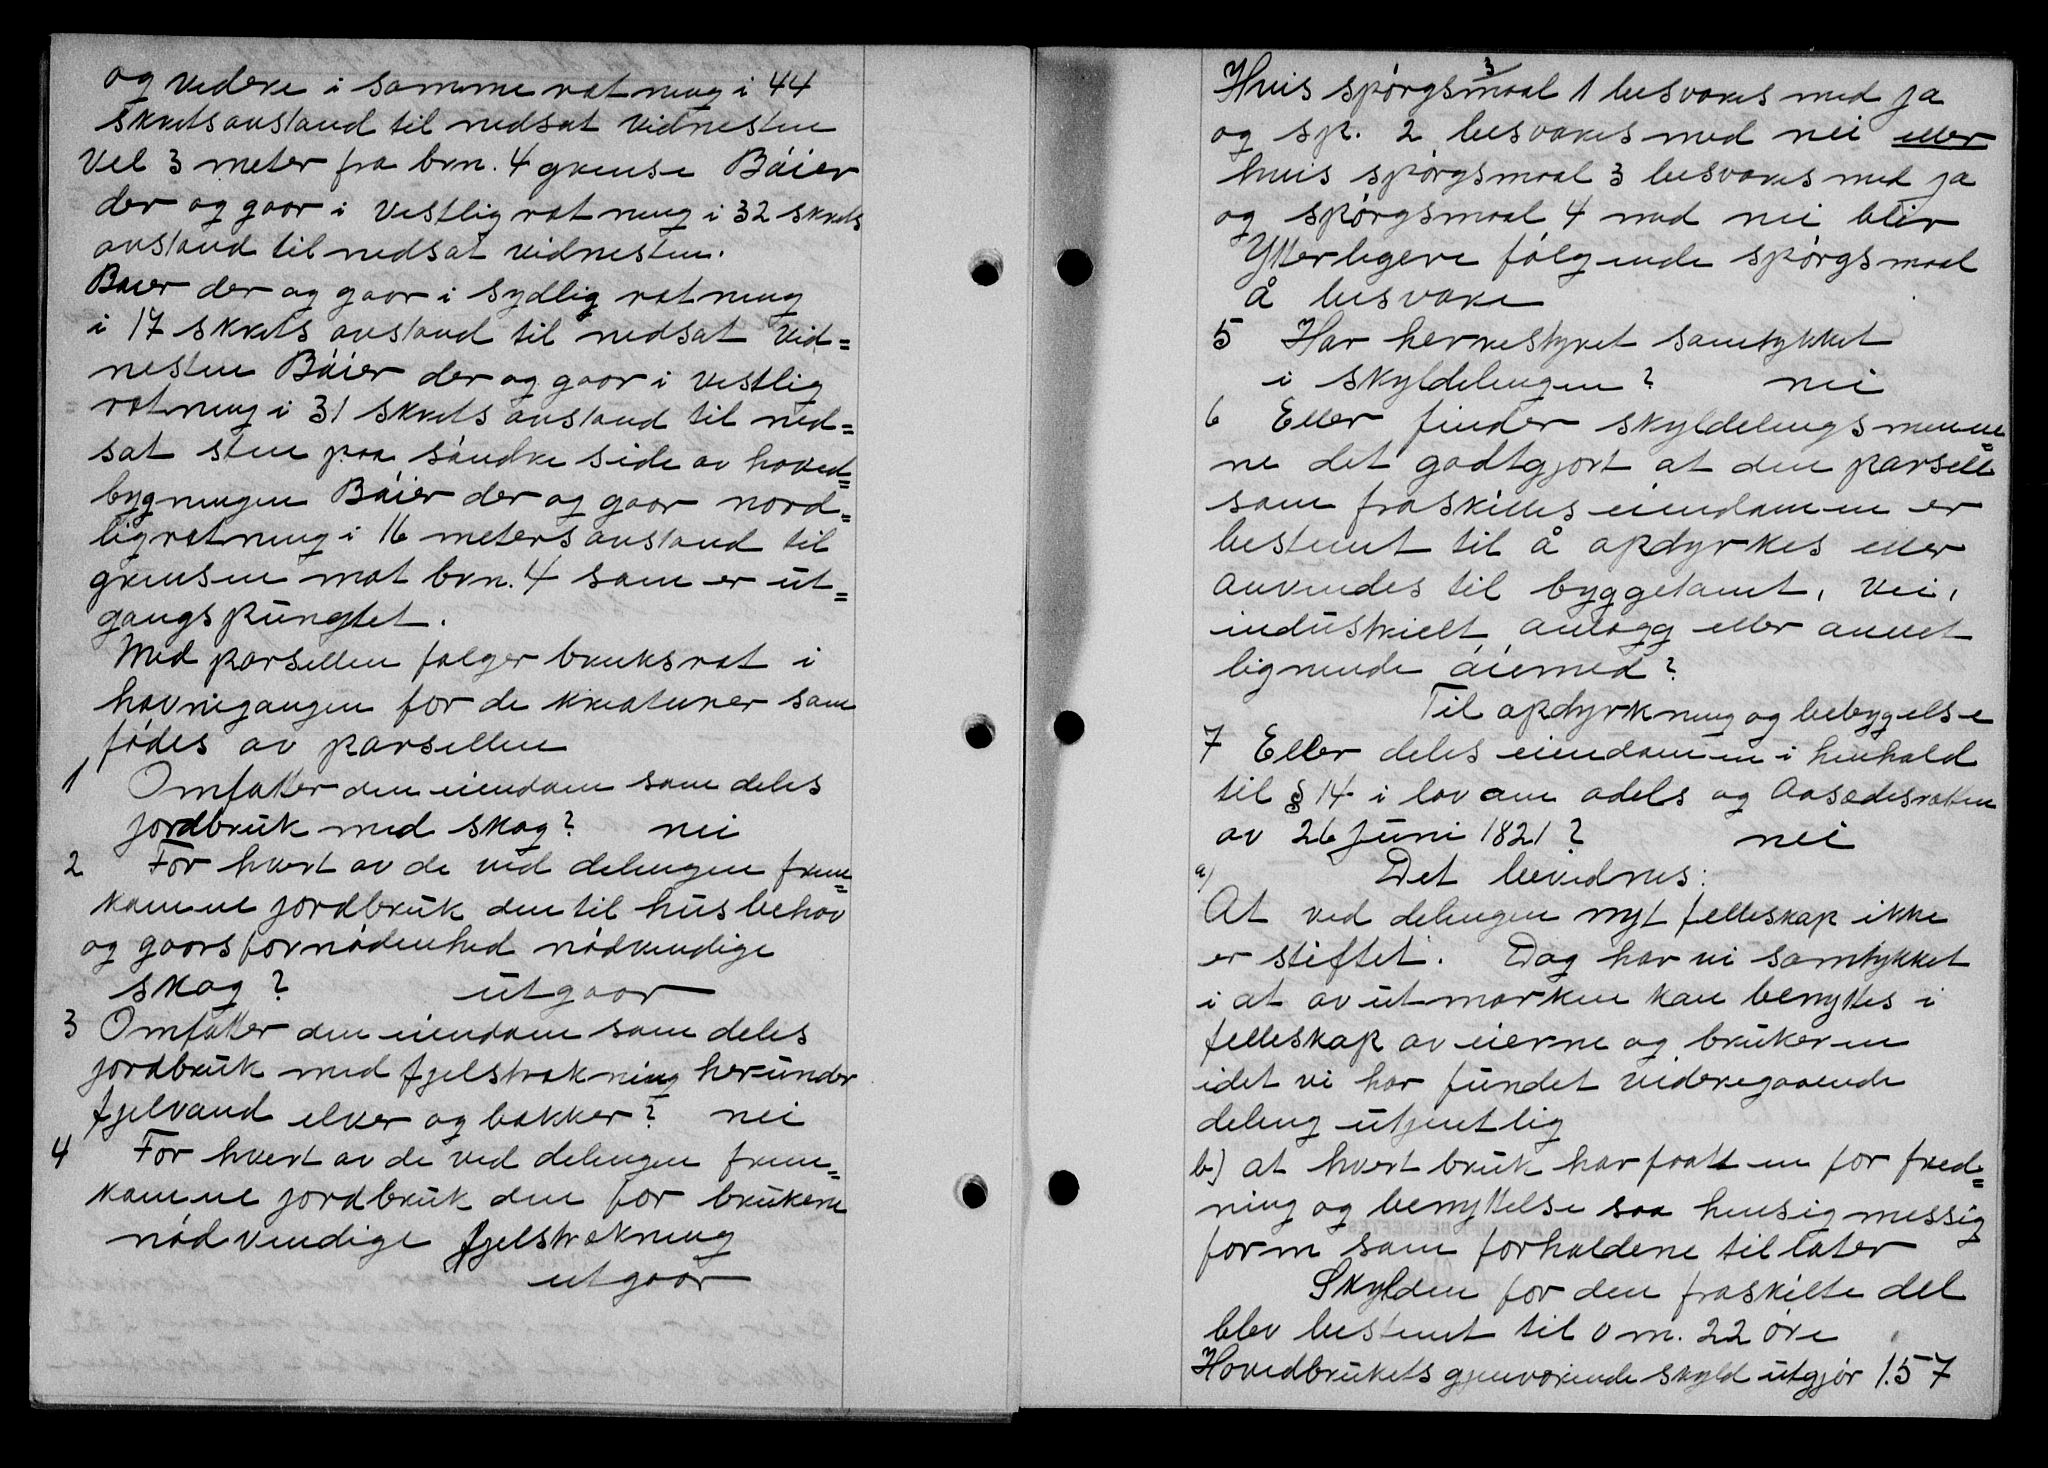 og videre i samme retning i 44
skretsavstand til nedsat vidnesten
vel 3 meter fra brn. 4 grense Bøier
der og gaar i vestlig retning i 32 skrets
avstand til nedsat vidnesten.
Bøier der og gaar i sydlig retning
i 17 skrets avstand til nedsat vid=
nesten Bøier der og gaar i vestlig
retning i 31 skrets avstand til ned=
sat sten paa søndre side av hoved=
bygningen Bøier der og gaar nord=
lig retning i 16 meters avstand til
grensen mot brn. 4 som er ut=
gangspungtet.
Med parsellen følger bruksret i
havnegangen for de kreaturer som
fødes av parsellen
1 Omfatter den eiendom som deles
jordbruk med skog? nei
2 For hvert av de ved delingen frem=
komne jordbruk den til husbehov
og gaarsfornødenhed nødvendige
skog? utgaar
3 Omfatter den eiendom som deles
jordbruk med fjelstrekning herunder
fjelvand elver og bekker? nei
4 For hvert av de ved delingen frem=
komne jordbruk den for brukene
nødvendige fjelstrekning
utgaar
Hvis spørgsmaal 1 besvares med ja
og sp. 2 besvares med nei eller
hvis spørgsmaal 3 besvares med ja
og spørgsmaal 4 med nei blir
Ytterligere følgende spørgsmaal
å besvare
5 Har herredstyret samtykket
i skyldelingen? nei
6 Eller finder skyldelingsmenne=
ne det godtgjort at den parsell
som fraskilles eiendommen er
bestemt til å opdyrkes eller
anvendes til byggetomt, vei,
industrielt anlegg eller annet
lignende øiemed?
Til opdyrkning og bebygelse
7 Eller deles eiendommen i henhold
til § 14 i lov om odels og Aasedesretten
av 26 Juni 1821? nei
a) Det bevidnes:
At ved delingen nyt felleskap ikke
er stiftet. Dog har vi samtykket
i at av utmarken kan benyttes i
felleskap av eierne og brukerne
idet vi har fundet videregaaende
deling utjentlig
b) at hvert bruk har faatt en for fred=
ning og benyttelse saa hensigmessig
form som forholdene tillater
Skylden for den fraskilte del
blev bestemt til 0 m. 22 øre
Hovedbrukets gjenværende skyld utgjør 1.57